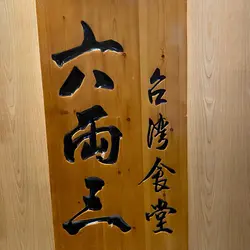 六两三
台湾食堂